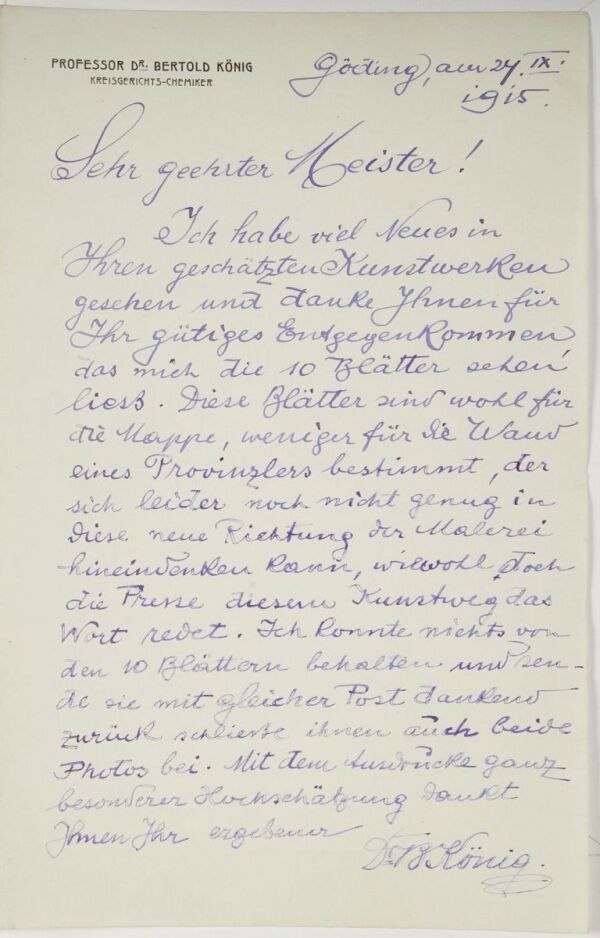 PROFESSOR DR. BERTOLD KÖNIG
KREISGERICHTS-CHEMIKER
Göding, am 24. IX.
1915.
Sehr geehrter Meister!
Ich habe viel Neues in
Ihren geschätzten Kunstwerken
gesehen und danke Ihnen für
Ihr gütiges Entgegenkommen,
das mich die 10 Blätter sehen
liess. Diese Blätter sind wohl für
die Mappe, weniger für die Wand
eines Provinzlers bestimmt, der
sich leider noch nicht genug in
diese neue Richtung der Malerei
hineindenken kann, wiewohl doch
die Presse diesem Kunstweg das
Wort redet. Ich konnte nichts von
den 10 Blättern behalten und sen-
de sie mit gleicher Post dankend
zurück schließe ihnen auch beide
Photos bei. Mit dem Ausdrucke ganz
besonderer Hochschätzung dankt
Ihnen Ihr ergebener
Dr B König.